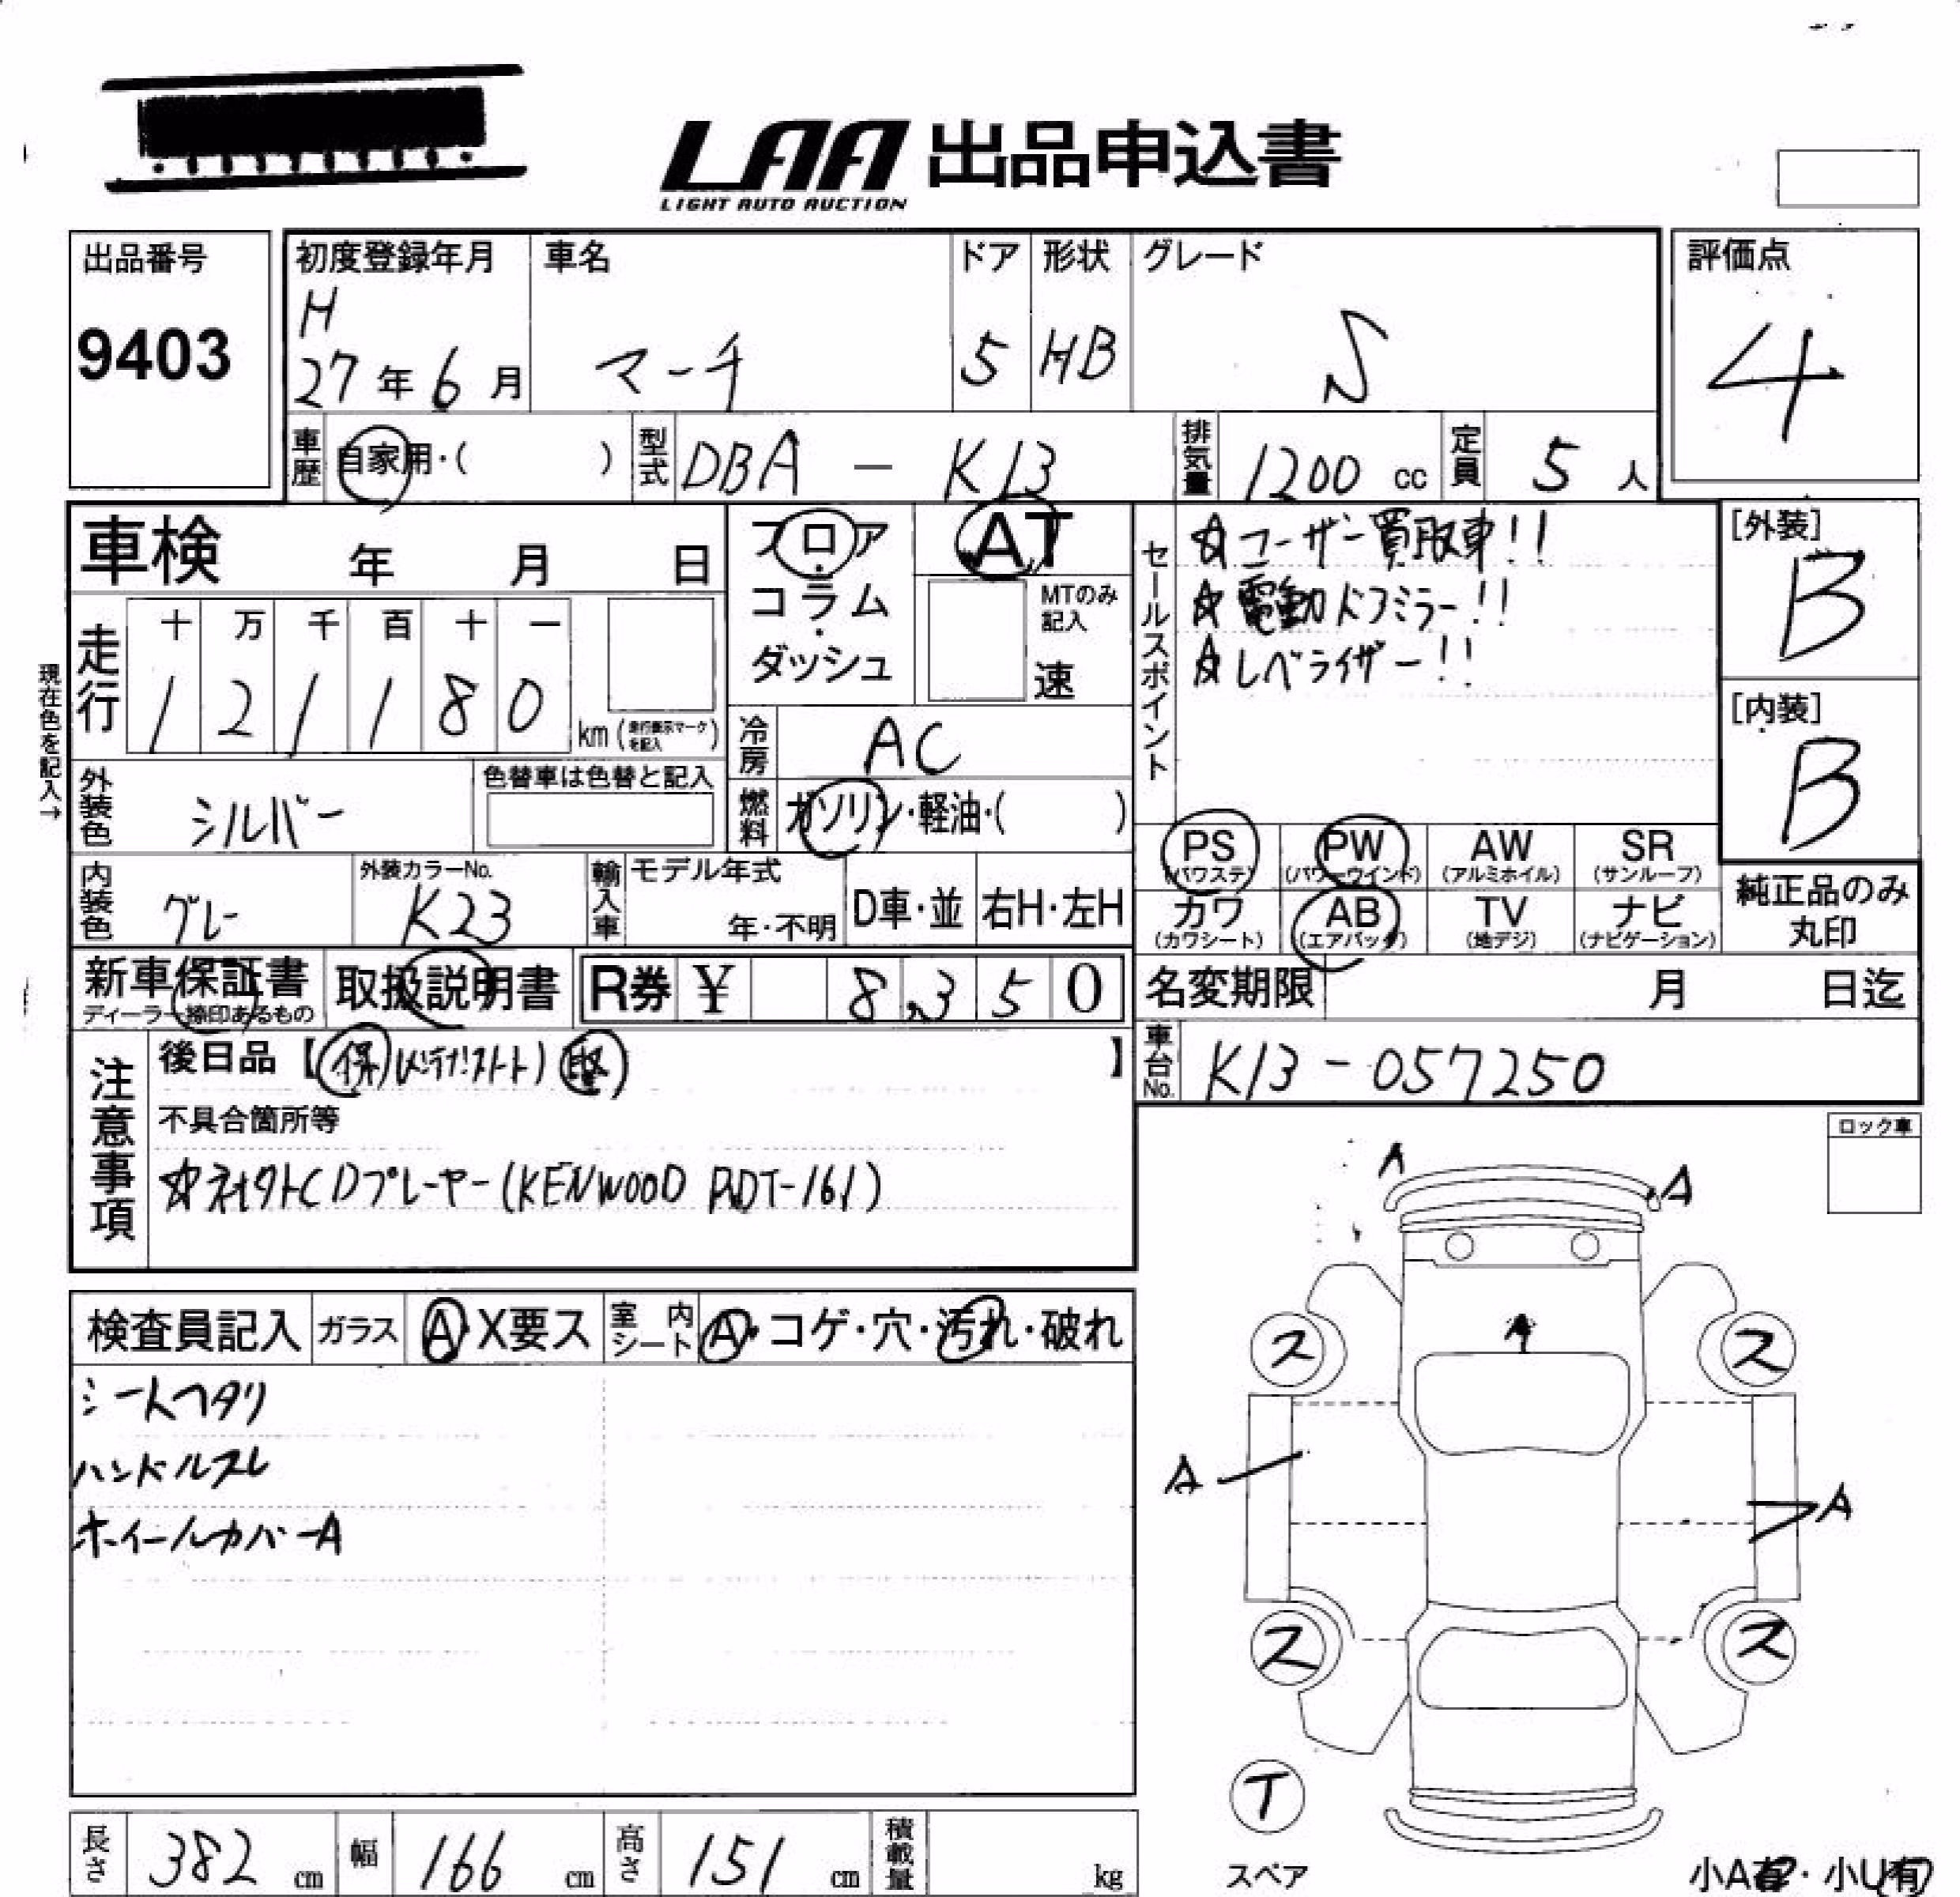 LAA 出品申込書
LIGHT AUTO AUCTION
出品番号
9403
初度登録年月
H
27年6月
車名
マーチ
ドア
5
形状
HB
グレード
S
評価点
4
車歴
自家用・( )
型式
DBA - K13
排気量
1200 cc
定員
5 人
車検 年 月 日
フロア・コラム・ダッシュ
AT
MTのみ記入
速
走行
十 万 千 百 十 一
1 2 1 1 8 0
km(走行表示マークを記入)
現在色を記入→
冷房
AC
燃料
ガソリン・軽油・( )
外装色
シルバー
色替車は色替と記入
内装色
グレー
外装カラーNo.
K23
輸入車
モデル年式
年・不明
D車・並
右H・左H
セールスポイント
☆ユーザー買取車!!
☆電動ドアミラー!!
☆レベライザー!!
[外装]
B
[内装]
B
PS
(パワステ)
PW
(パワーウインド)
AW
(アルミホイル)
SR
(サンルーフ)
カワ
(カワシート)
AB
(エアバック)
TV
(地デジ)
ナビ
(ナビゲーション)
純正品のみ丸印
新車保証書
ディーラー捺印あるもの
取扱説明書
R券 ¥ 8,350
名変期限 月 日迄
車台No.
K13-057250
注意事項
後日品【保(メンテナンスノート) 取】
不具合箇所等
☆社外CDプレーヤー(KENWOOD RDT-161)
ロック車
検査員記入
ガラス
A・X要ス
室内シート
A・コゲ・穴・汚れ・破れ
シートヘタリ
ハンドルスレ
ホイールカバーA
A
A
A
ス
ス
A
A
ス
ス
T
スペア
小A有・小U有
長さ
382 cm
幅
166 cm
高さ
151 cm
積載量
kg